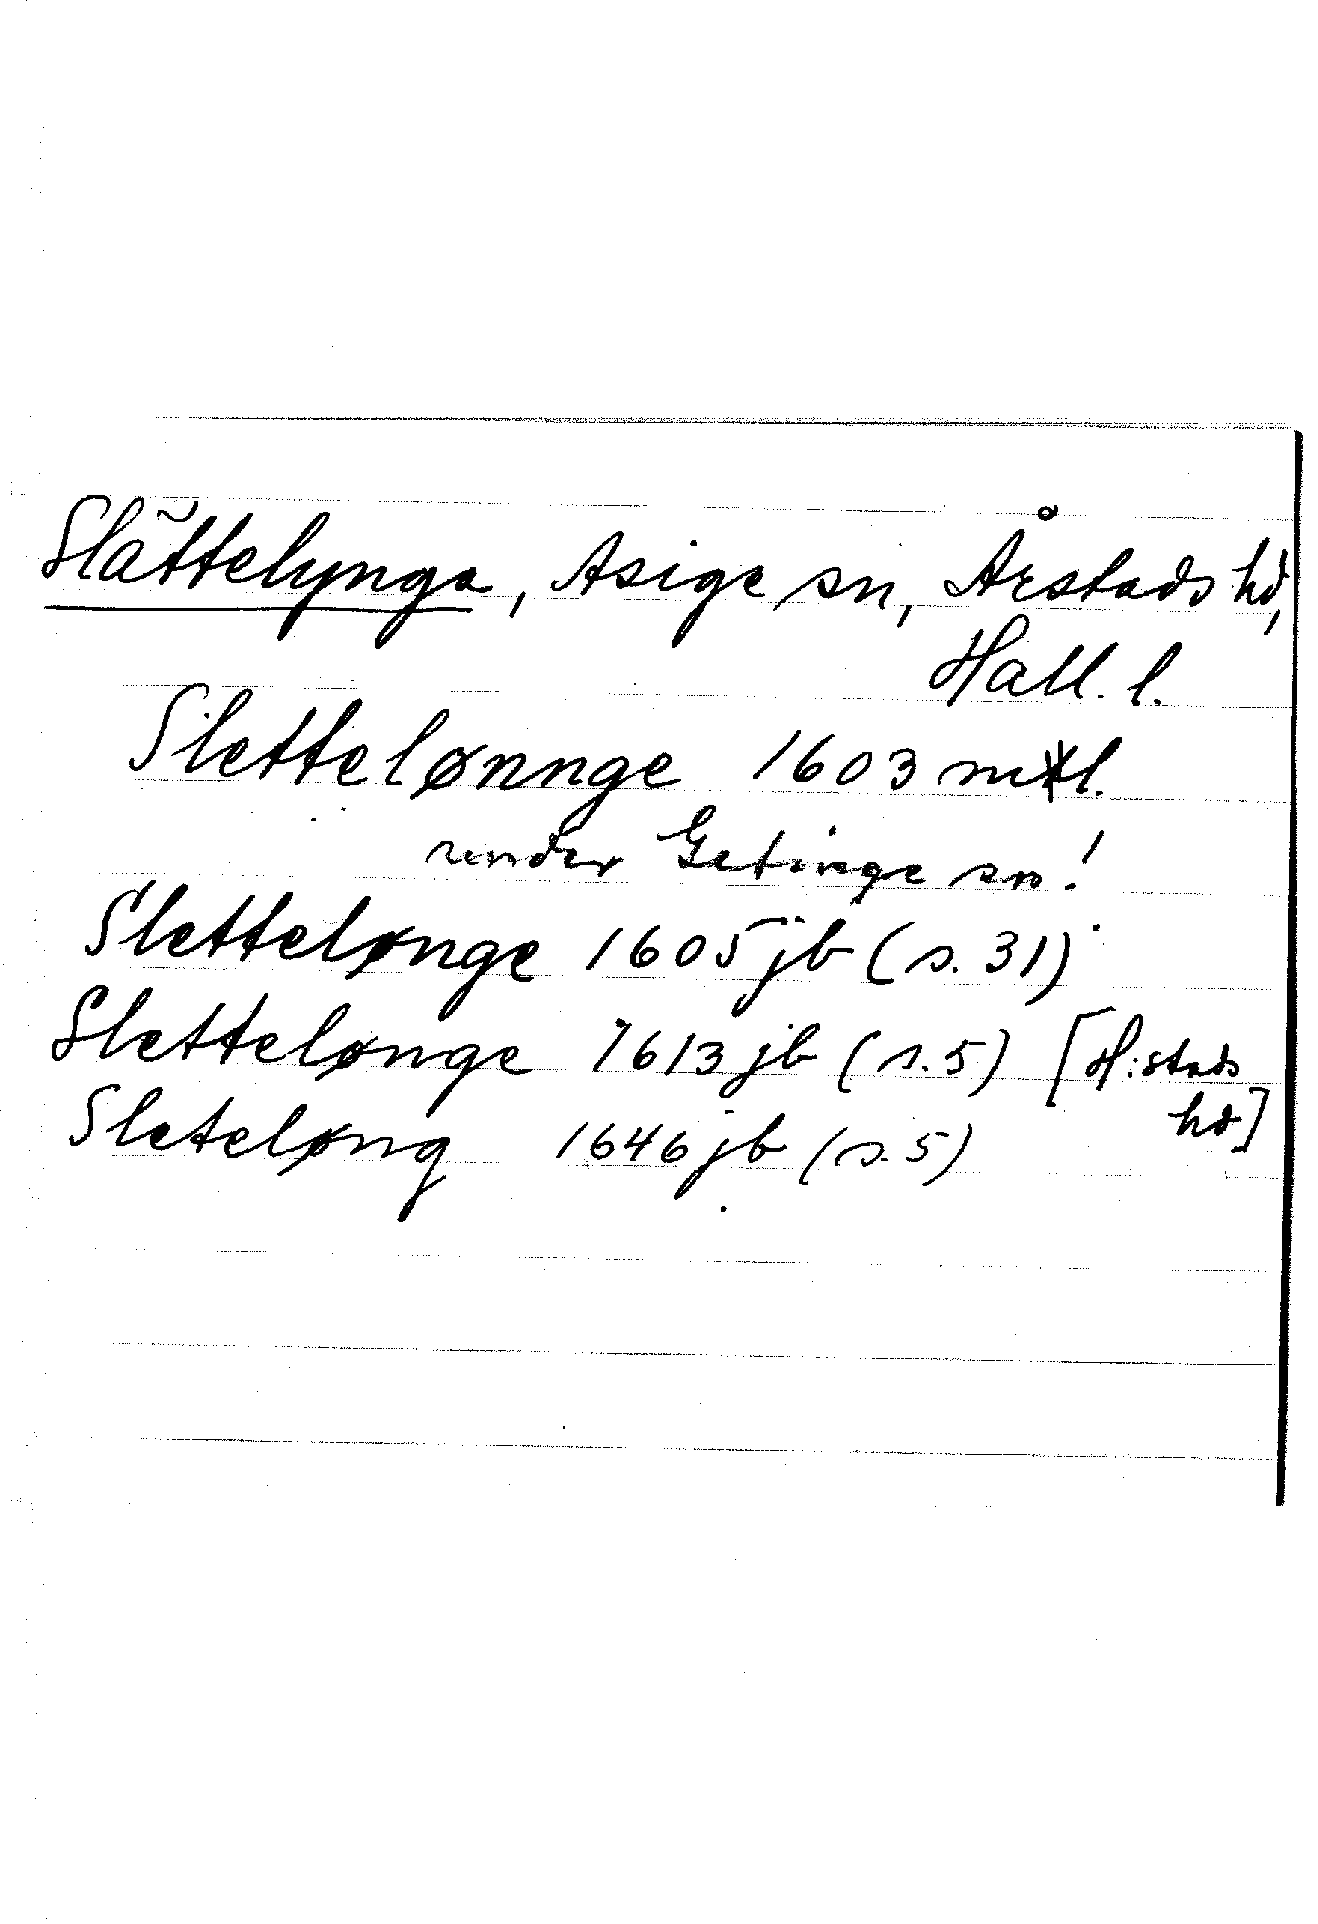 Slättelynga, Asige sn, Årstads hd,
Hall. l.
Slettelønnge 1603 mtl.
under Getinge sn!
Slettelønge 1605 jb (s. 31)
Slettelønge 1613 jb (s. 5) [H:stads
hd]
Sleteløng 1646 jb (s. 5)